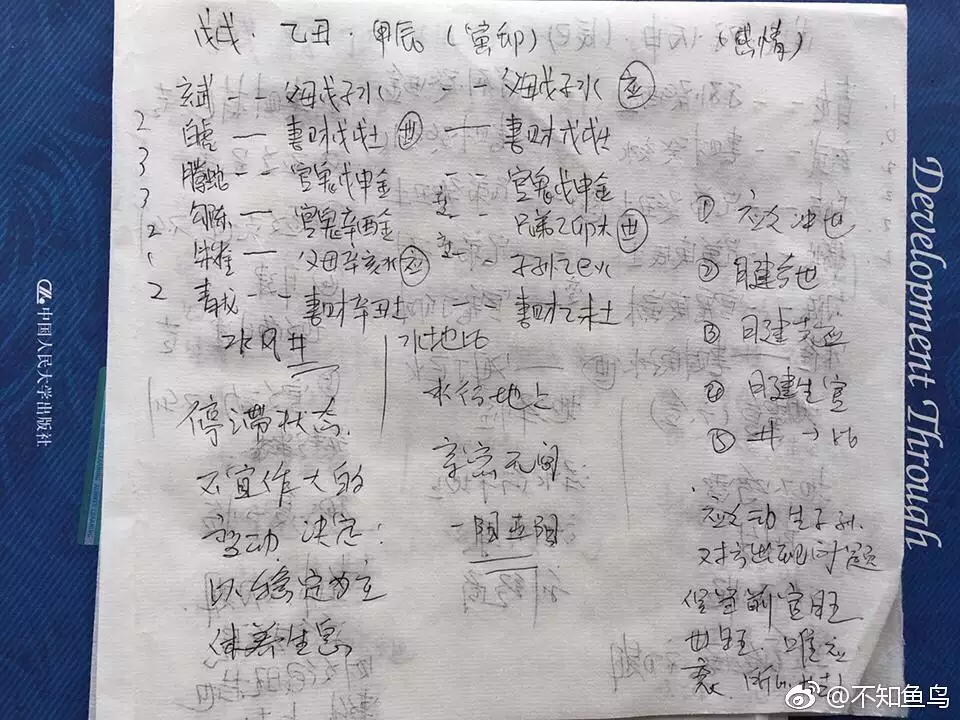 戊戌·乙丑·甲辰(寅卯) (感情)
玄武 -- 父母戊子水 -- 父母戊子水 应
2 白虎 — 妻财戊戌土 世 — 妻财戊戌土
3 腾蛇 -- 官鬼戊申金 -- 官鬼戊申金
3 勾陈 — 官鬼辛酉金 -- 兄弟乙卯木 世
2 朱雀 — 父母辛亥水 应 -- 子孙乙巳火
1
2 青龙 -- 妻财辛丑土 -- 妻财乙未土
水风井
水地比
停滞状态,
不宜作大的
变动 决定;
以稳定为主
休养生息
水行地上
亲密无间
一阳五阴
① 应爻冲世
② 日建合世
③ 日建克应
④ 日建生官
⑤ 井→比
应爻动生子孙.
对方出现问题
官旺
世旺. 唯应
衰.
中国人民大学出版社
Development Through
@不知鱼鸟